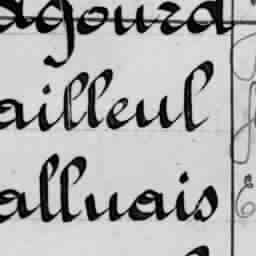 agourd
ailleul
alluais